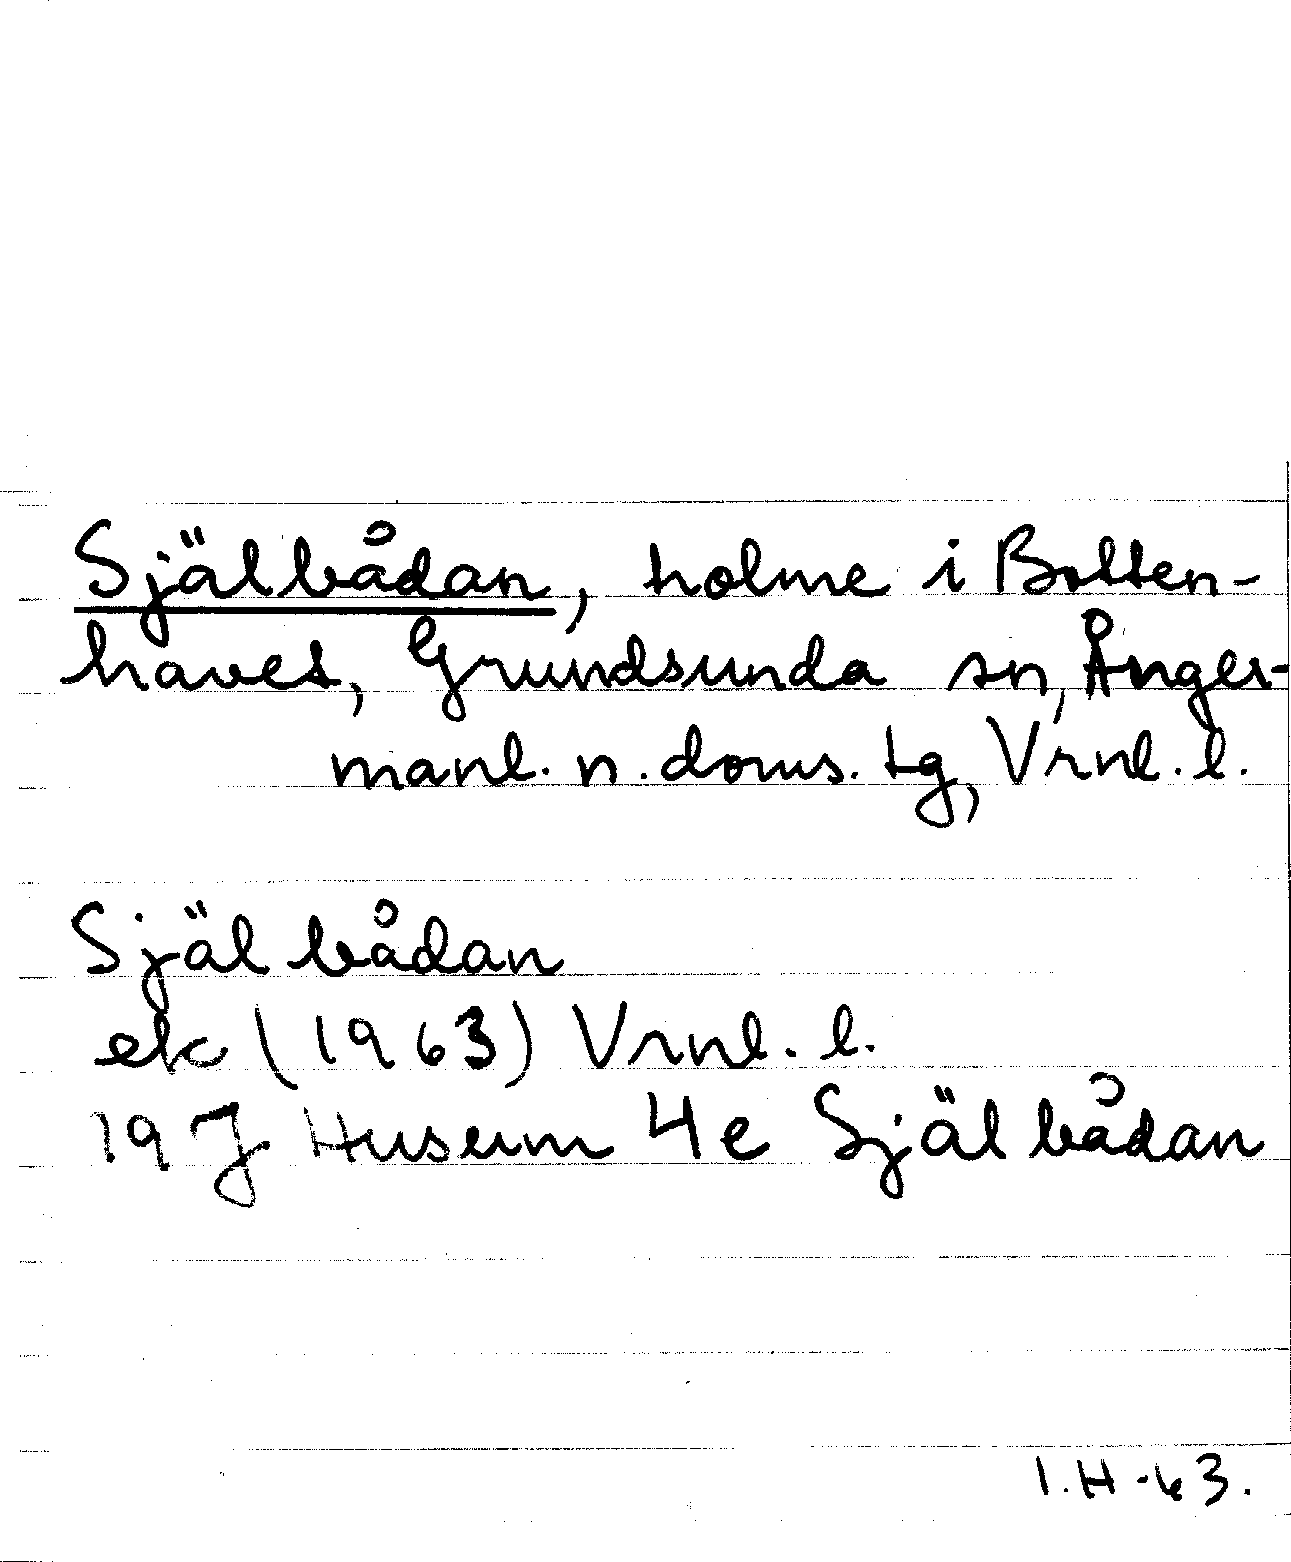 Själbådan, holme i Botten-
havet, Grundsunda sn, Ånger-
manl. n. doms. tg, Vrnl. l.
Själbådan
ek (1963) Vrnl. l.
19 J Husum 4e Själbådan
I.H-63.